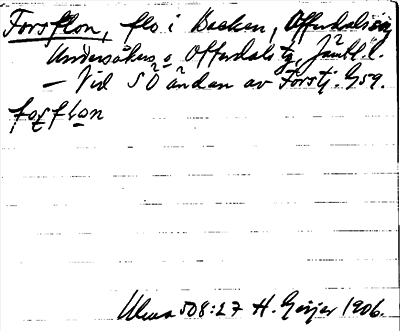 Forsflon, flo i Backen, Offerdals sn,
Undersåkers o Offerdals tg, Jämtl. l.
— Vid SO ändan av Forstj. G59.
fɔʂflɔn
Ulma 508:27 H. Geijer 1906.